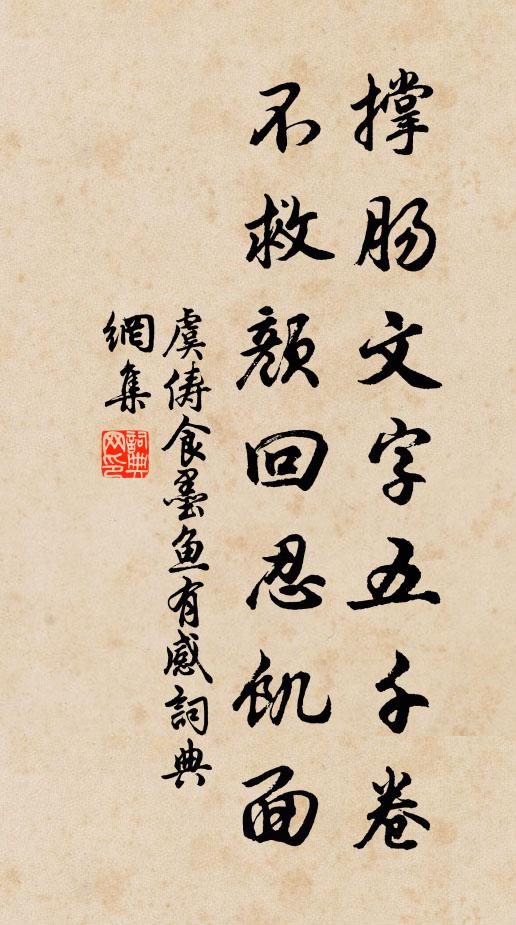 撑肠文字五千卷
不救颜回忍飢面
虞俦食墨鱼有感詞典
網集
詞典
网印